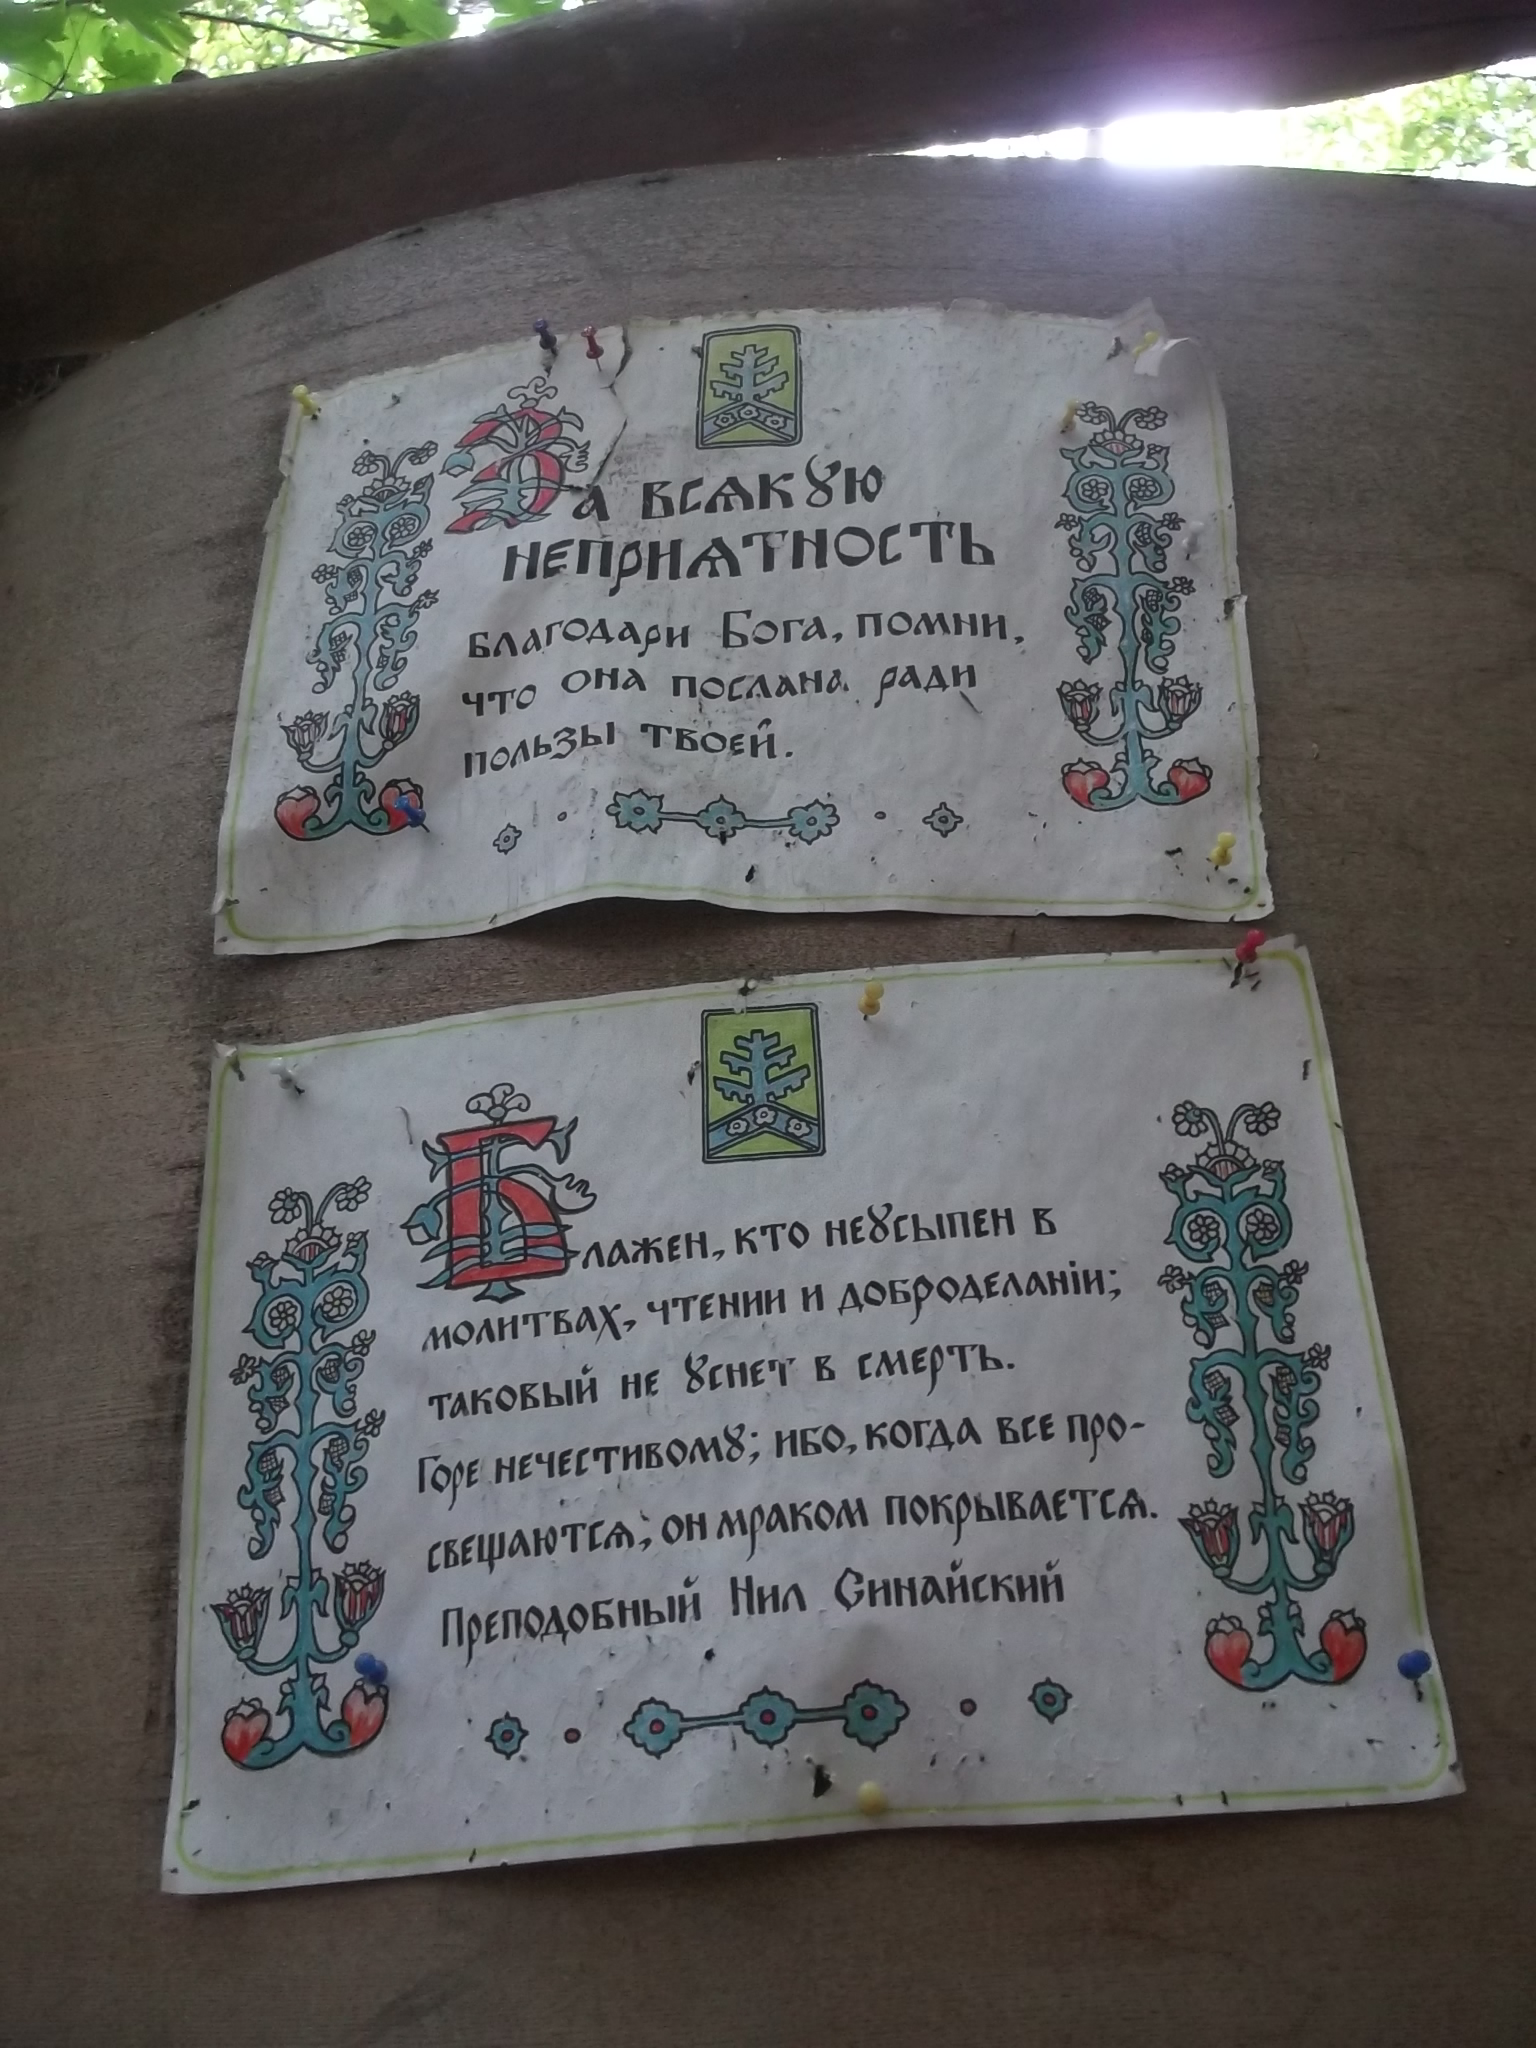 За всѧкꙋю
неприѧтность
благодари Бога, помни,
что она послана ради
пользы твоей.
Блажен, кто неꙋсыпен в
молитвах, чтении и доброделанiи;
таковый не ꙋснет в смерть.
Горе нечестивомꙋ; ибо, когда все про-
свещаютсѧ, он мраком покрываетсѧ.
Преподобный Нил Синайский